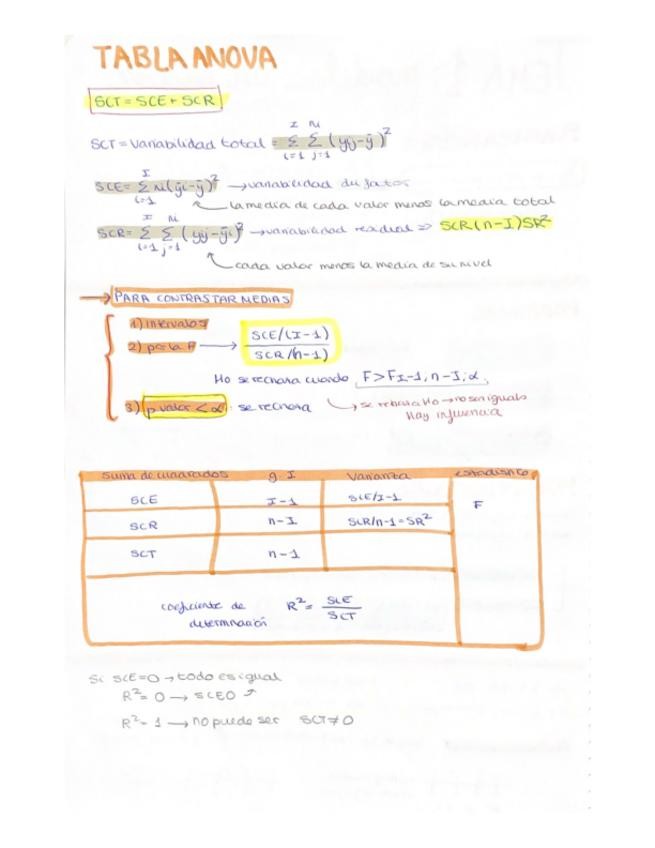 TABLA ANOVA
SCT = SCE + SCR
SCT = variabilidad total = Σ i=1 I Σ j=1 Ni (yij - ȳ)²
SCE = Σ i=1 I Ni (ȳi - ȳ)² → variabilidad du factor
la media de cada valor menos la media total
SCR = Σ i=1 I Σ j=1 Ni (yij - ȳi)² → variabilidad residual => SCR (n-I) SR²
cada valor menos la media de su nivel
→ PARA CONTRASTAR MEDIAS
1) intervalos
2) por la F → SCE/(I-1)
SCR/(n-1)
Ho se rechaza cuando F > F I-1, n-I; α
3) p valor < α : se rechaza → se rechaza Ho → no son iguales
Hay influencia
Suma de cuadrados g. I Varianza estadístico
SCE I-1 SCE/I-1 F
SCR n-I SCR/n-1 = SR²
SCT n-1
coeficiente de determinación R² = SCE
SCT
Si SCE=0 → todo es igual
R² = 0 → SCE0
R² = 1 → no puede ser SCT ≠ 0